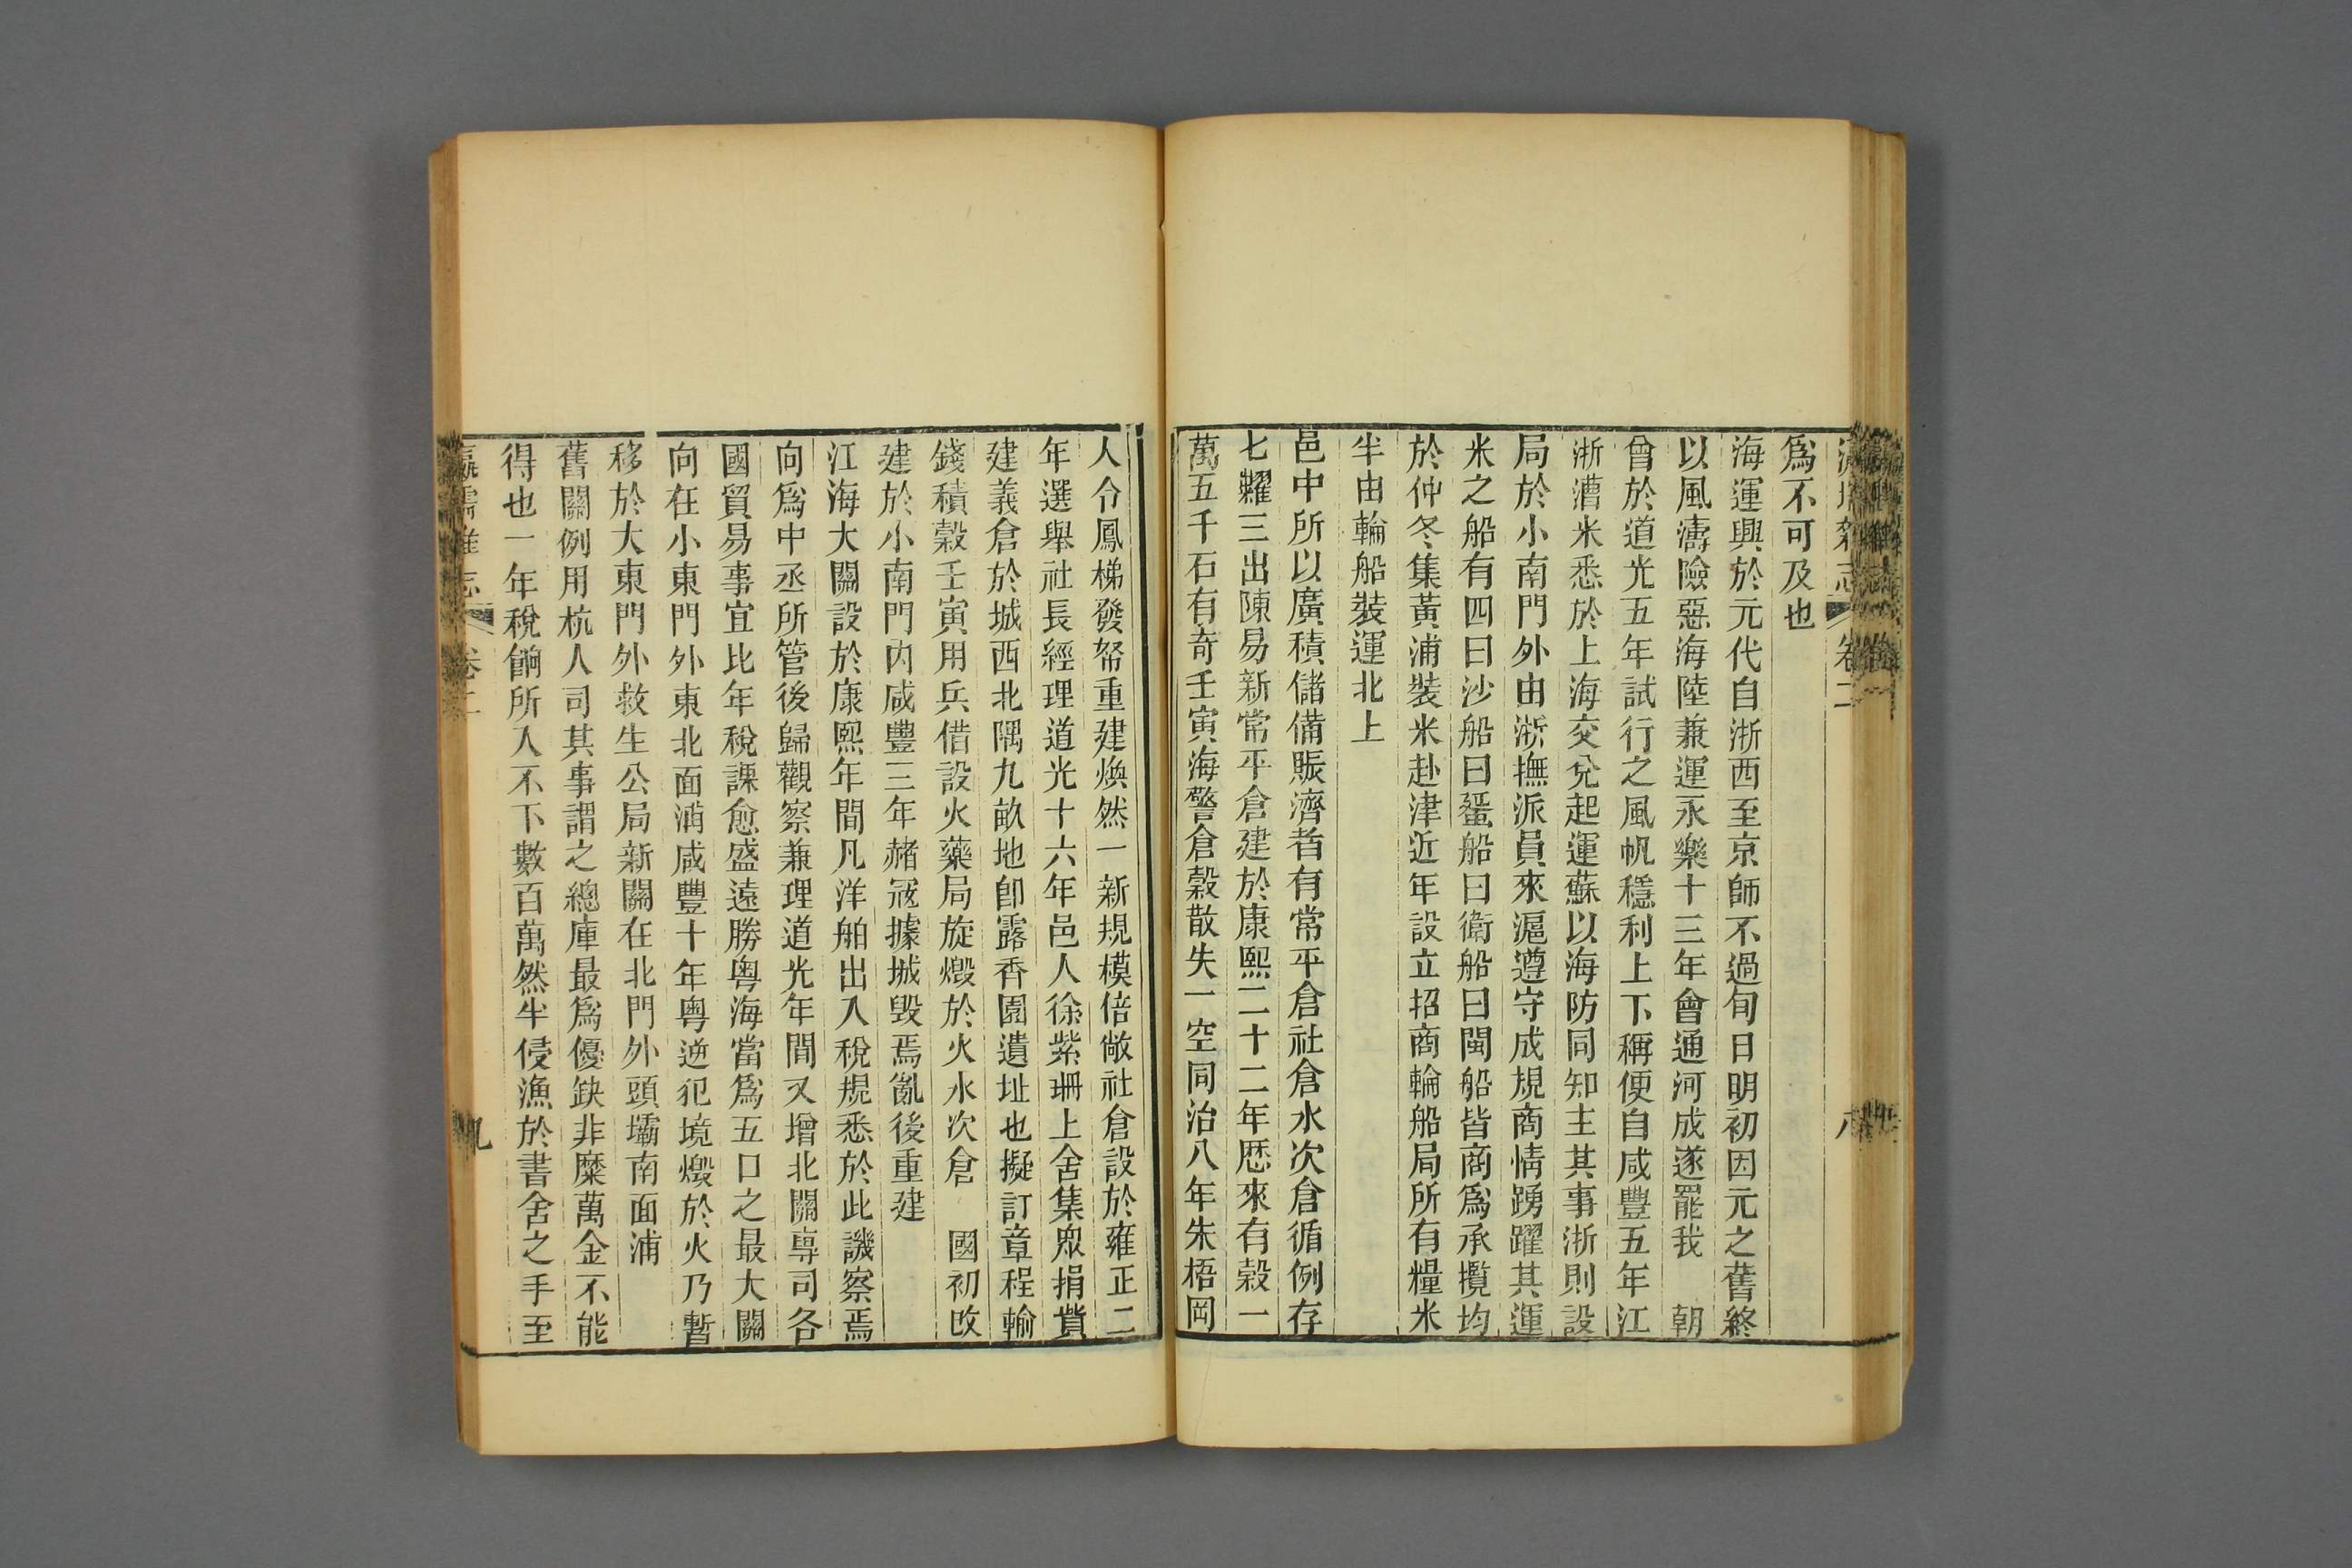 爲不可及也
海運興於元代自浙西至京師不過旬日明初因元之舊終
以風濤險惡海陸兼運永樂十三年會通河成遂罷我　朝
曾於道光五年試行之風帆穩利上下稱便自咸豐五年江
浙漕米悉於上海交兌起運蘇以海防同知主其事浙則設
局於小南門外由浙撫派員來滬遵守成規商情踴躍其運
米之船有四曰沙船曰蜑船曰衛船曰閩船皆商爲承攬均
於仲冬集黃浦裝米赴津近年設立招商輪船局所有糧米
半由輪船裝運北上
邑中所以廣積儲備賑濟者有常平倉社倉水次倉循例存
七糶三出陳易新常平倉建於康熙二十二年歷來有穀一
萬五千石有奇壬寅海警倉穀散失一空同治八年朱梧岡
人令鳳梯發帑重建煥然一新規模倍敞社倉設於雍正二
年選舉社長經理道光十六年邑人徐紫珊上舍集眾捐貲
建義倉於城西北隅九畝地卽露香園遺址也擬訂章程輸
錢積穀壬寅用兵借設火藥局旋燬於火水次倉　國初改
建於小南門內咸豐三年赭寇據城毀焉亂後重建
江海大關設於康熙年間凡洋舶出入稅規悉於此譏察焉
向爲中丞所管後歸觀察兼理道光年間又增北關専司各
國貿易事宜比年稅課愈盛遠勝粤海當爲五口之最大關
向在小東門外東北面浦咸豐十年粤逆犯境燬於火乃暫
移於大東門外救生公局新關在北門外頭壩南面浦
舊關例用杭人司其事謂之總庫最爲優缺非糜萬金不能
得也一年稅餉所入不下數百萬然半侵漁於書舍之手至
瀛壖雜志　卷二　九